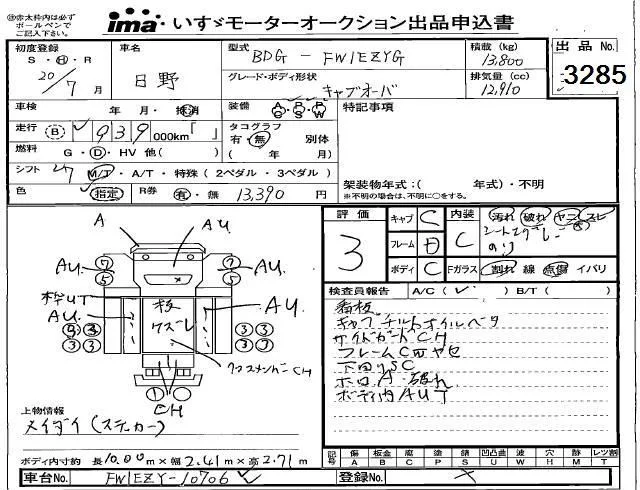 ㊟赤太枠内は必ず
ボールペンで
ご記入下さい。
ima いすゞモーターオークション出品申込書
初度登録
S・Ⓗ・R
20/7月
車名
日野
型式
BDG - FW1EZYG
グレード・ボディ形状
キャブオーバ
積載 (kg)
13,800
排気量 (cc)
12,910
出品No.
3285
車検 年・月・抹消
装備 A/C P/S P/W
特記事項
走行 (B) ✓ 939 000km「 」
タコグラフ
有・無 別体
( 年 月)
燃料 G・Ⓓ・HV 他( )
シフト 27 M/T・A/T・特殊(2ペダル・3ペダル)
色 指定 R券 有・無 13,390 円
架装物年式:( 年式)・不明
※不明の場合は、不明に○をする。
評価
3
キャブ C
フレーム D
ボディ C
内装
C
汚れ 破れ ヤニ スレ
Fガラス 割れ 線 点傷 イバリ
検査員報告 A/C( ✓ ) B/T( )
看板
キャブチルトオイルベタ
サイドガードCH
フレームC凹ヤセ
下回りSC
ホロA・破れ
ボディ内AUT
A
AU
⑦
⑤
AU
⑦
⑤
AU
枠UT
AU
板
ワズレ
AU
③③
③③
③③
③③
クロスメンバーCH
①
CH
上物情報
メイダイ(ステッカー)
ボディ内寸約 長10.00m×幅2.41m×高2.71m
記号
傷 板金 腐 塗 錆 凹凸曲 波 穴 跡 レツ割
A B C P S U W H M T
車台No. FW1EZY-10706 ✓
登録No.